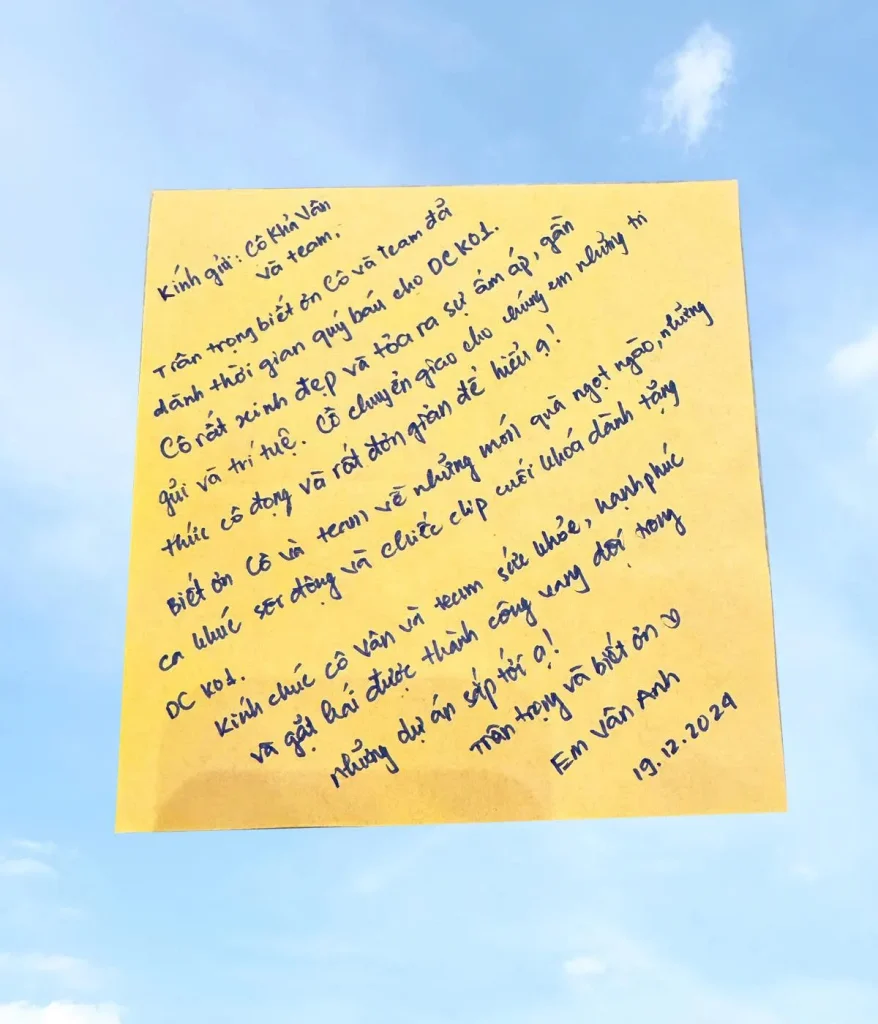 Kính gửi: Cô Khả Vân
và team,
Trân trọng biết ơn Cô và team đã
dành thời gian quý báu cho DC K01.
Cô rất xinh đẹp và tỏa ra sự ấm áp, gần
gũi và trí tuệ. Cô chuyển giao cho chúng em những tri
thức cô đọng và rất đơn giản dễ hiểu ạ!
Biết ơn Cô và team về những món quà ngọt ngào, những
ca khúc sôi động và chiếc clip cuối khóa dành tặng
DC K01.
Kính chúc cô Vân và team sức khỏe, hạnh phúc
và gặt hái được thành công vang dội trong
những dự án sắp tới ạ!
Trân trọng và biết ơn
Em Vân Anh
19.12.2024